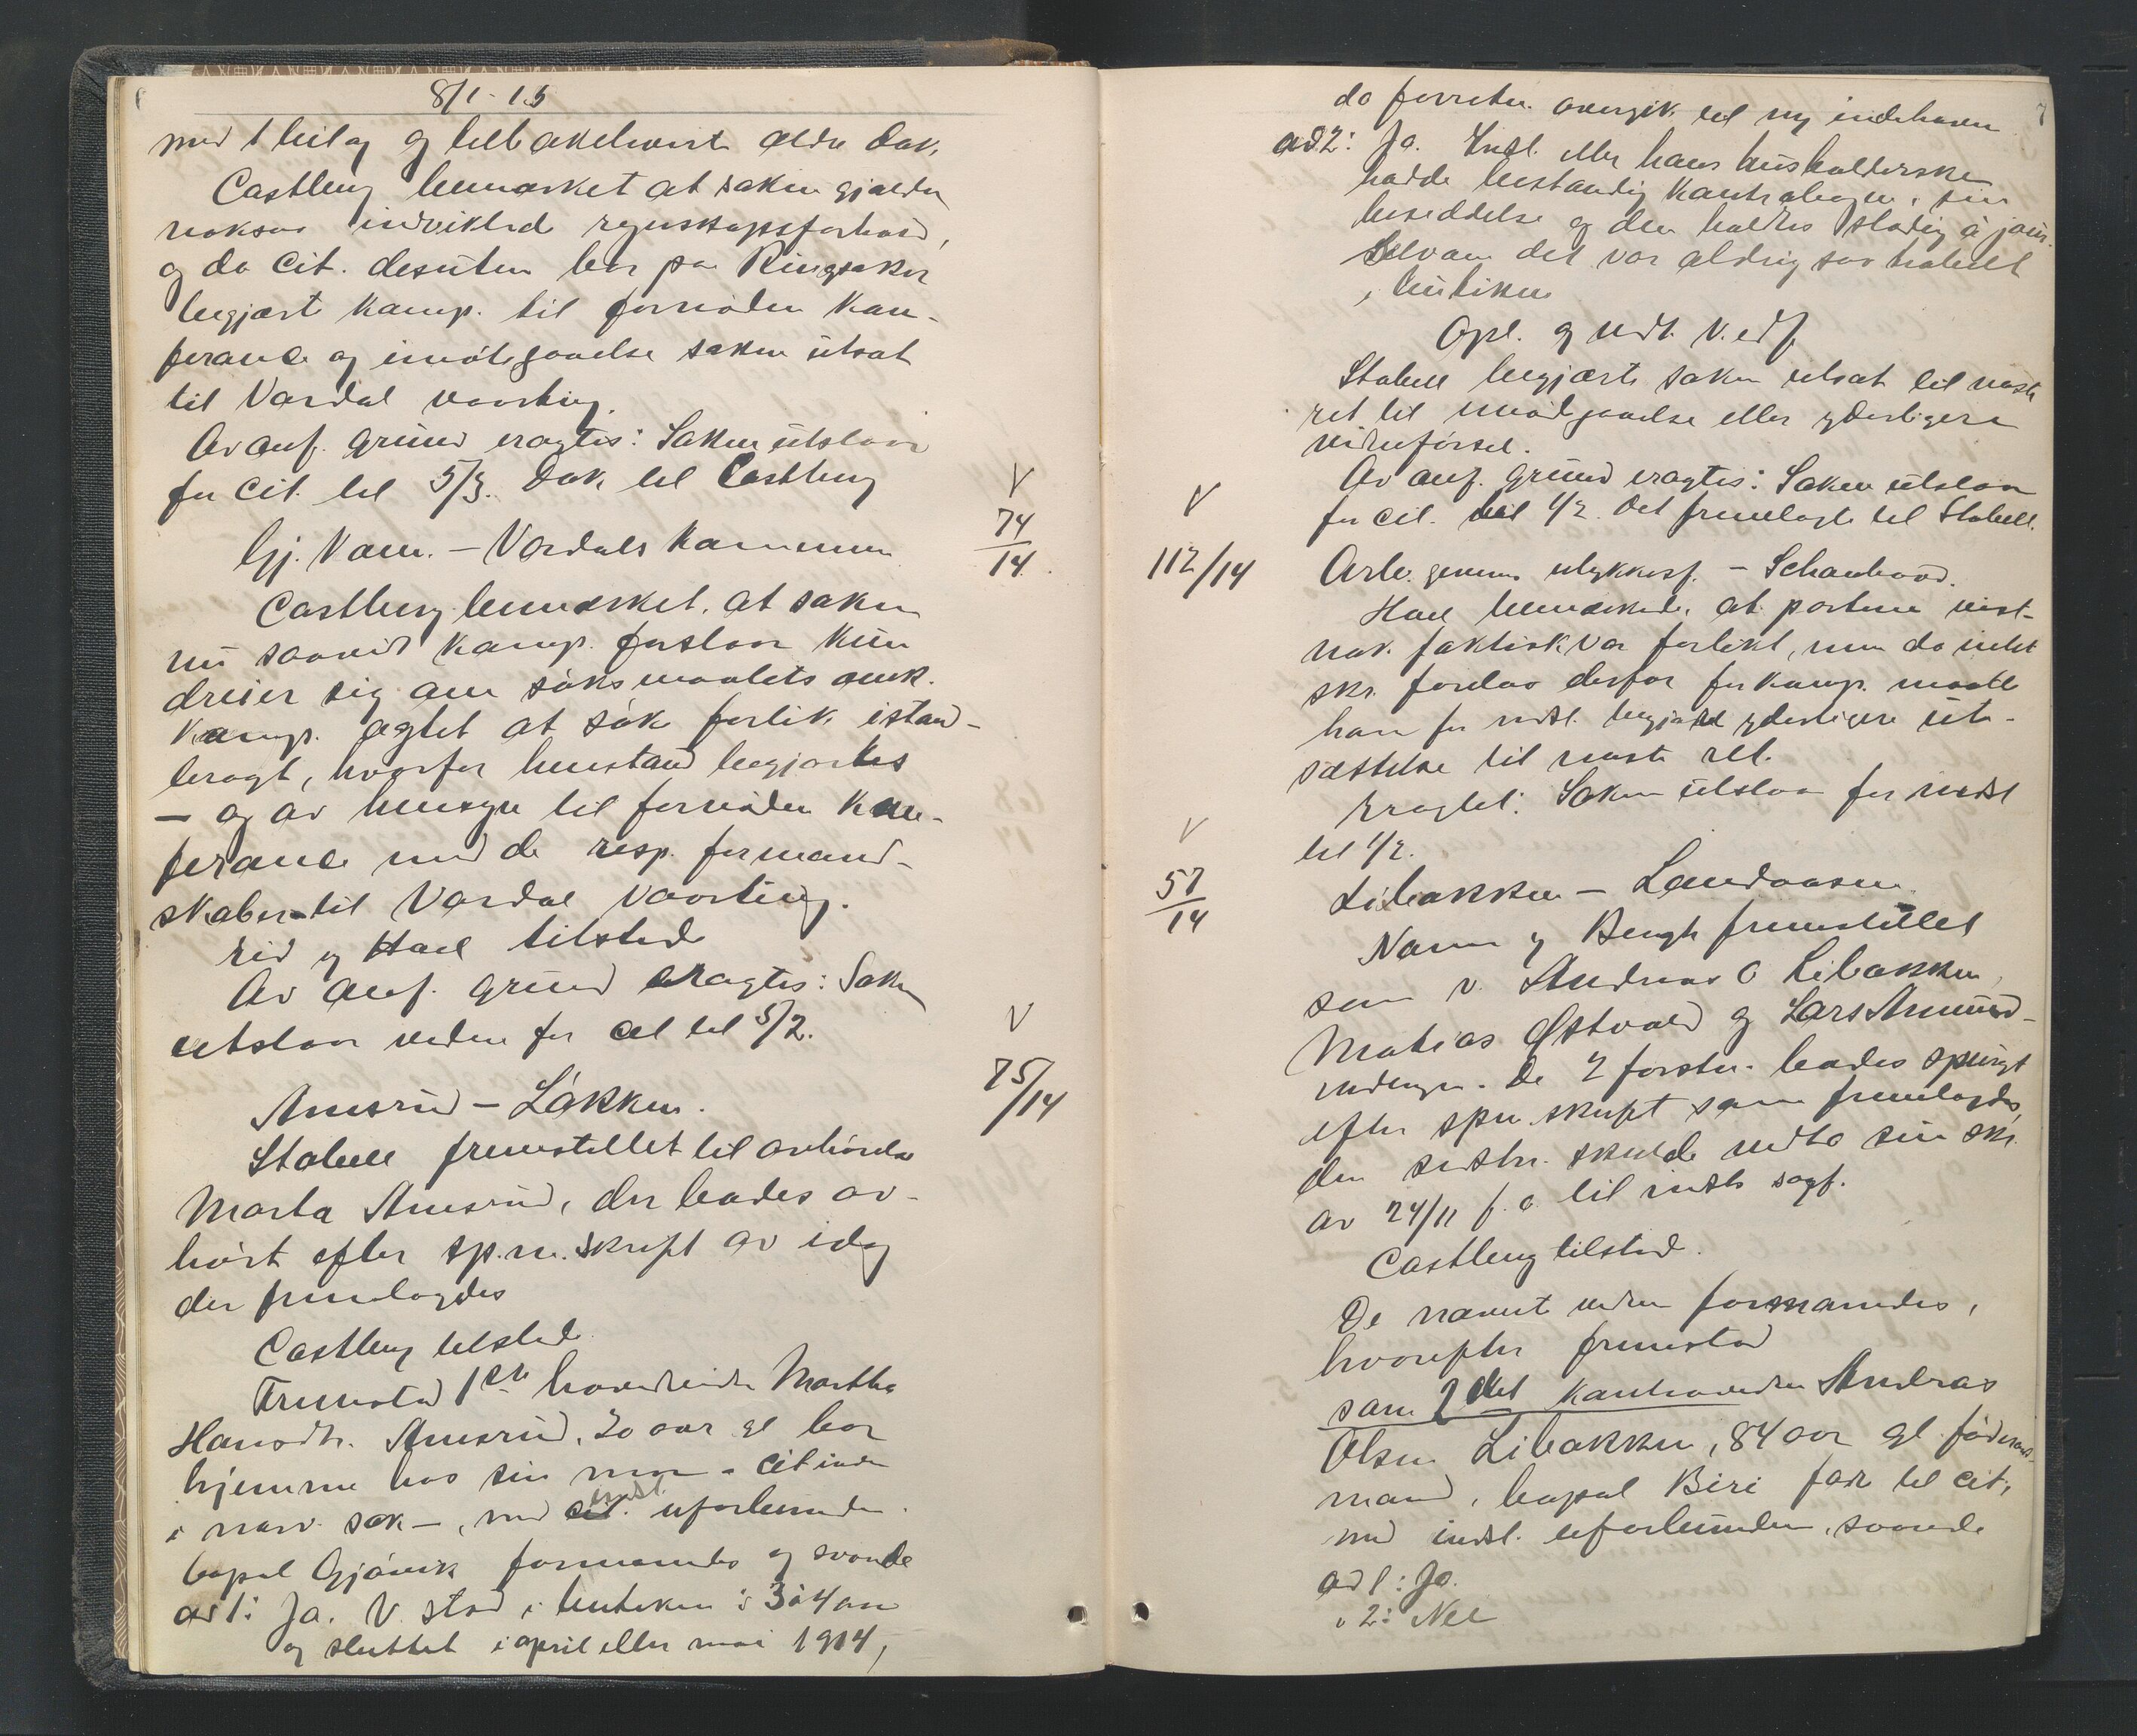 8/1-15
med 1 bilag og tilbakeleverte ældre dok.
Castberg bemerket at saken gjælder
noksaa indviklede regnskapsforhold,
og da Cit. desuten bor paa Ringsaker
begjært komp. til fornøden kon-
ferance og imøtegaaelse saken utsat
til Vardal vaarting.
Av anf. grund eragtes: Saken utstaar
for Cit. til 5/3. Dok til Castberg
V
74/14
Gj. Vam. - Vardals kommune
Castberg bemerket, at saken
nu saavidt komp. forstaar kun
dreier sig om søksmaalets omk.
Komp. agtet at søke forlik istand-
bragt, hvorfor henstand begjærtes
- og av hensyn til fornøden kon-
ferance med de resp. formand-
skaber til Vardal Vaarting.
Eid og Hoel tilstede
Av anf. grund eragtes: Saken
utstaar videre for cit til 5/2.
V
75/14
Amsrud - Løkken.
Stabell fremstillet til avhørelse
Marta Amsrud, der bades av-
hørt efter sp.m. skrift av idag
der fremlagdes
Castberg tilstede.
Fremstod 1ste hovedvidne Martha
Hansdtr. Amsrud, 20 aar gl bor
hjemme hos sin mor - Citinden
i nærv. sak -, med indst. uforbunden
bopæl Gjøvik formanedes og svarede
ad 1: Ja. V. stod i butiken i 3 à 4 aar
og sluttet i april eller mai 1914,
7
da forretn. overgik til ny indehaver
ad 2: Ja. Indst. eller hans husholderske
hadde bestandig kontrabogen i sin
besiddelse og den holdtes stadig à jour.
Selvom det var aldrig saa travelt
i butiken
Opl. og vedt. V. edf.
Stabell begjærte saken utsat til næste
ret til imødegaaelse eller yderligere
vidneførsel.
Av anf. grund eragtes: Saken utstaar
V
for cit. til 1/2. Det fremlagte til Stabell.
112/14
Arb. gjenns ulykkesf. - Schanbood.
Hoel bemerkede, at partene vist-
nok faktisk var forlikt, men da intet
skr. forelaa derfor for komp. maatte
han for indst. begjære yderligere ut-
sættelse til næste ret.
Eragtet: Saken utstaar for indst
til 1/2.
V
57/14
Libakken - Landaasen.
Navn og Bergh fremstillet
som v. Andreas O Libakken,
Mathias Østvold og Lars Amund-
. De 2 første bades spurgt
efter spm. skrift som fremlagdes,
den sidste skulde vedta sin skr.
av 24/11 f. a. til indst sagf.
Castberg tilstede.
De nævnte vidner formanedes,
hvorefter fremstod
som 2det kontravidne Andreas
Olsen Libakken, 84 aar gl. føderaads-
mand, bopæl Biri far til cit.,
med indst. uforbunden, svarede
ad 1: Ja.
" 2: Nei